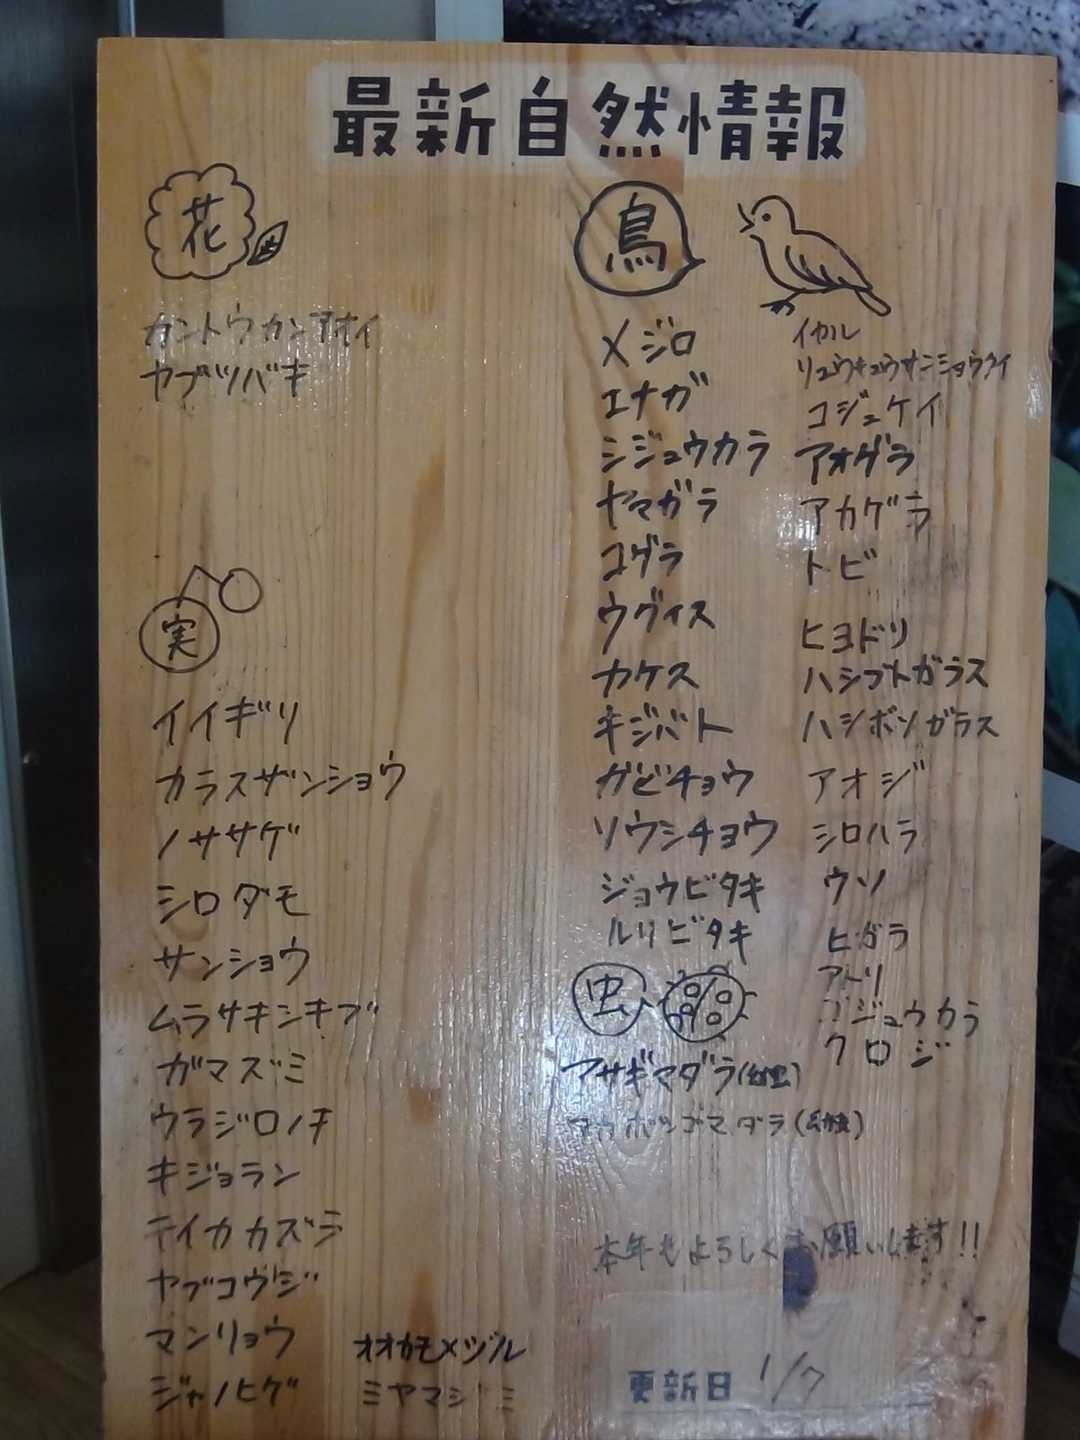 最新自然情報
花
カントウカンアオイ
ヤブツバキ
実
イイギリ
カラスザンショウ
ノササゲ
シロダモ
サンショウ
ムラサキシキブ
ガマズミ
ウラジロノキ
キジョラン
テイカカズラ
ヤブコウジ
マンリョウ
ジャノヒゲ
オオカモメヅル
ミヤマシキミ
鳥
メジロ
エナガ
シジュウカラ
ヤマガラ
コゲラ
ウグイス
カケス
キジバト
ガビチョウ
ソウシチョウ
ジョウビタキ
ルリビタキ
イカル
リュウキュウサンショウクイ
コジュケイ
アオゲラ
アカゲラ
トビ
ヒヨドリ
ハシブトガラス
ハシボソガラス
アオジ
シロハラ
ウソ
ヒガラ
アトリ
ゴジュウカラ
クロジ
虫
アサギマダラ(幼虫)
アカボシゴマダラ(幼虫)
本年もよろしくお願いします!!
更新日 1/7